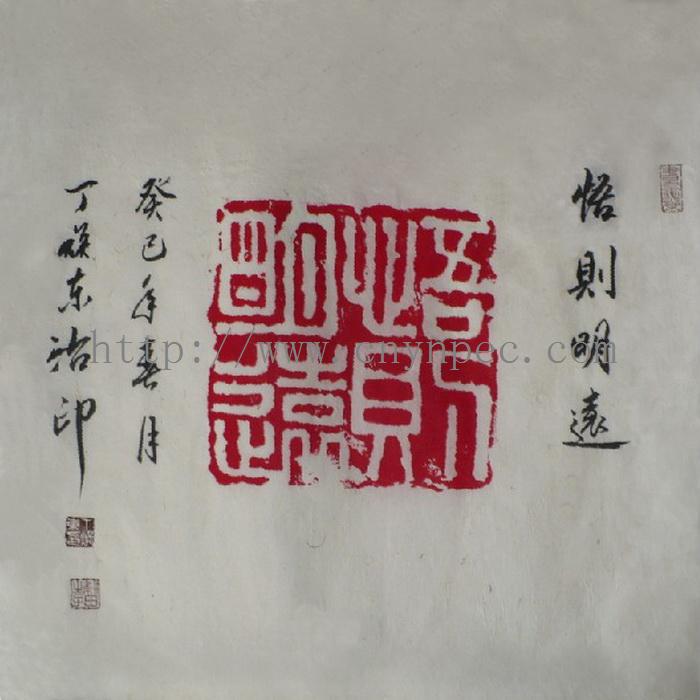 悟則明遠
悟則明遠
癸巳年春月
丁
东治印
http://www.cnynpec.com